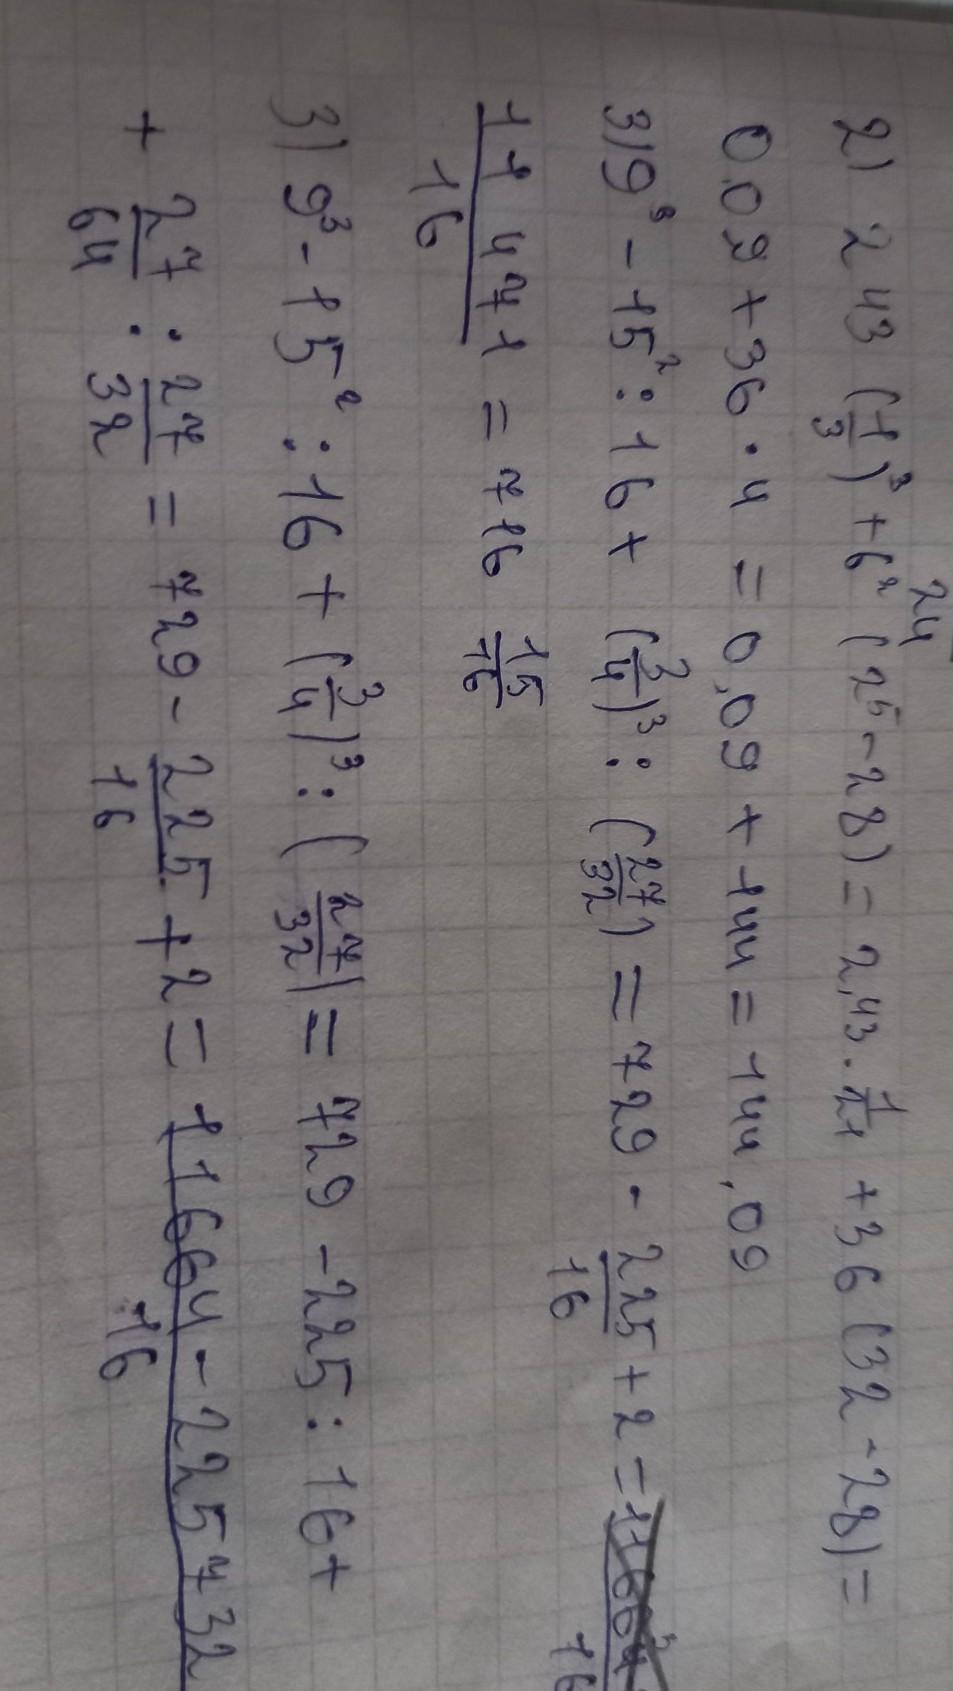 24
2) 2 43 (1/3)³ + 6² (2⁵ - 28) = 2,43 · 1/27 + 36 (32 - 28) =
0,09 + 36 · 4 = 0,09 + 144 = 144,09
3) 9³ - 15² : 16 + (3/4)³ : (27/32) = 729 - 225/16 + 2 =
11471/16 = 716 15/16
3) 9³ - 15² : 16 + (3/4)³ : (27/32) = 729 - 225 : 16 +
+ 27/64 : 27/32 = 729 - 225/16 + 2 = 11664 - 225 + 32/16